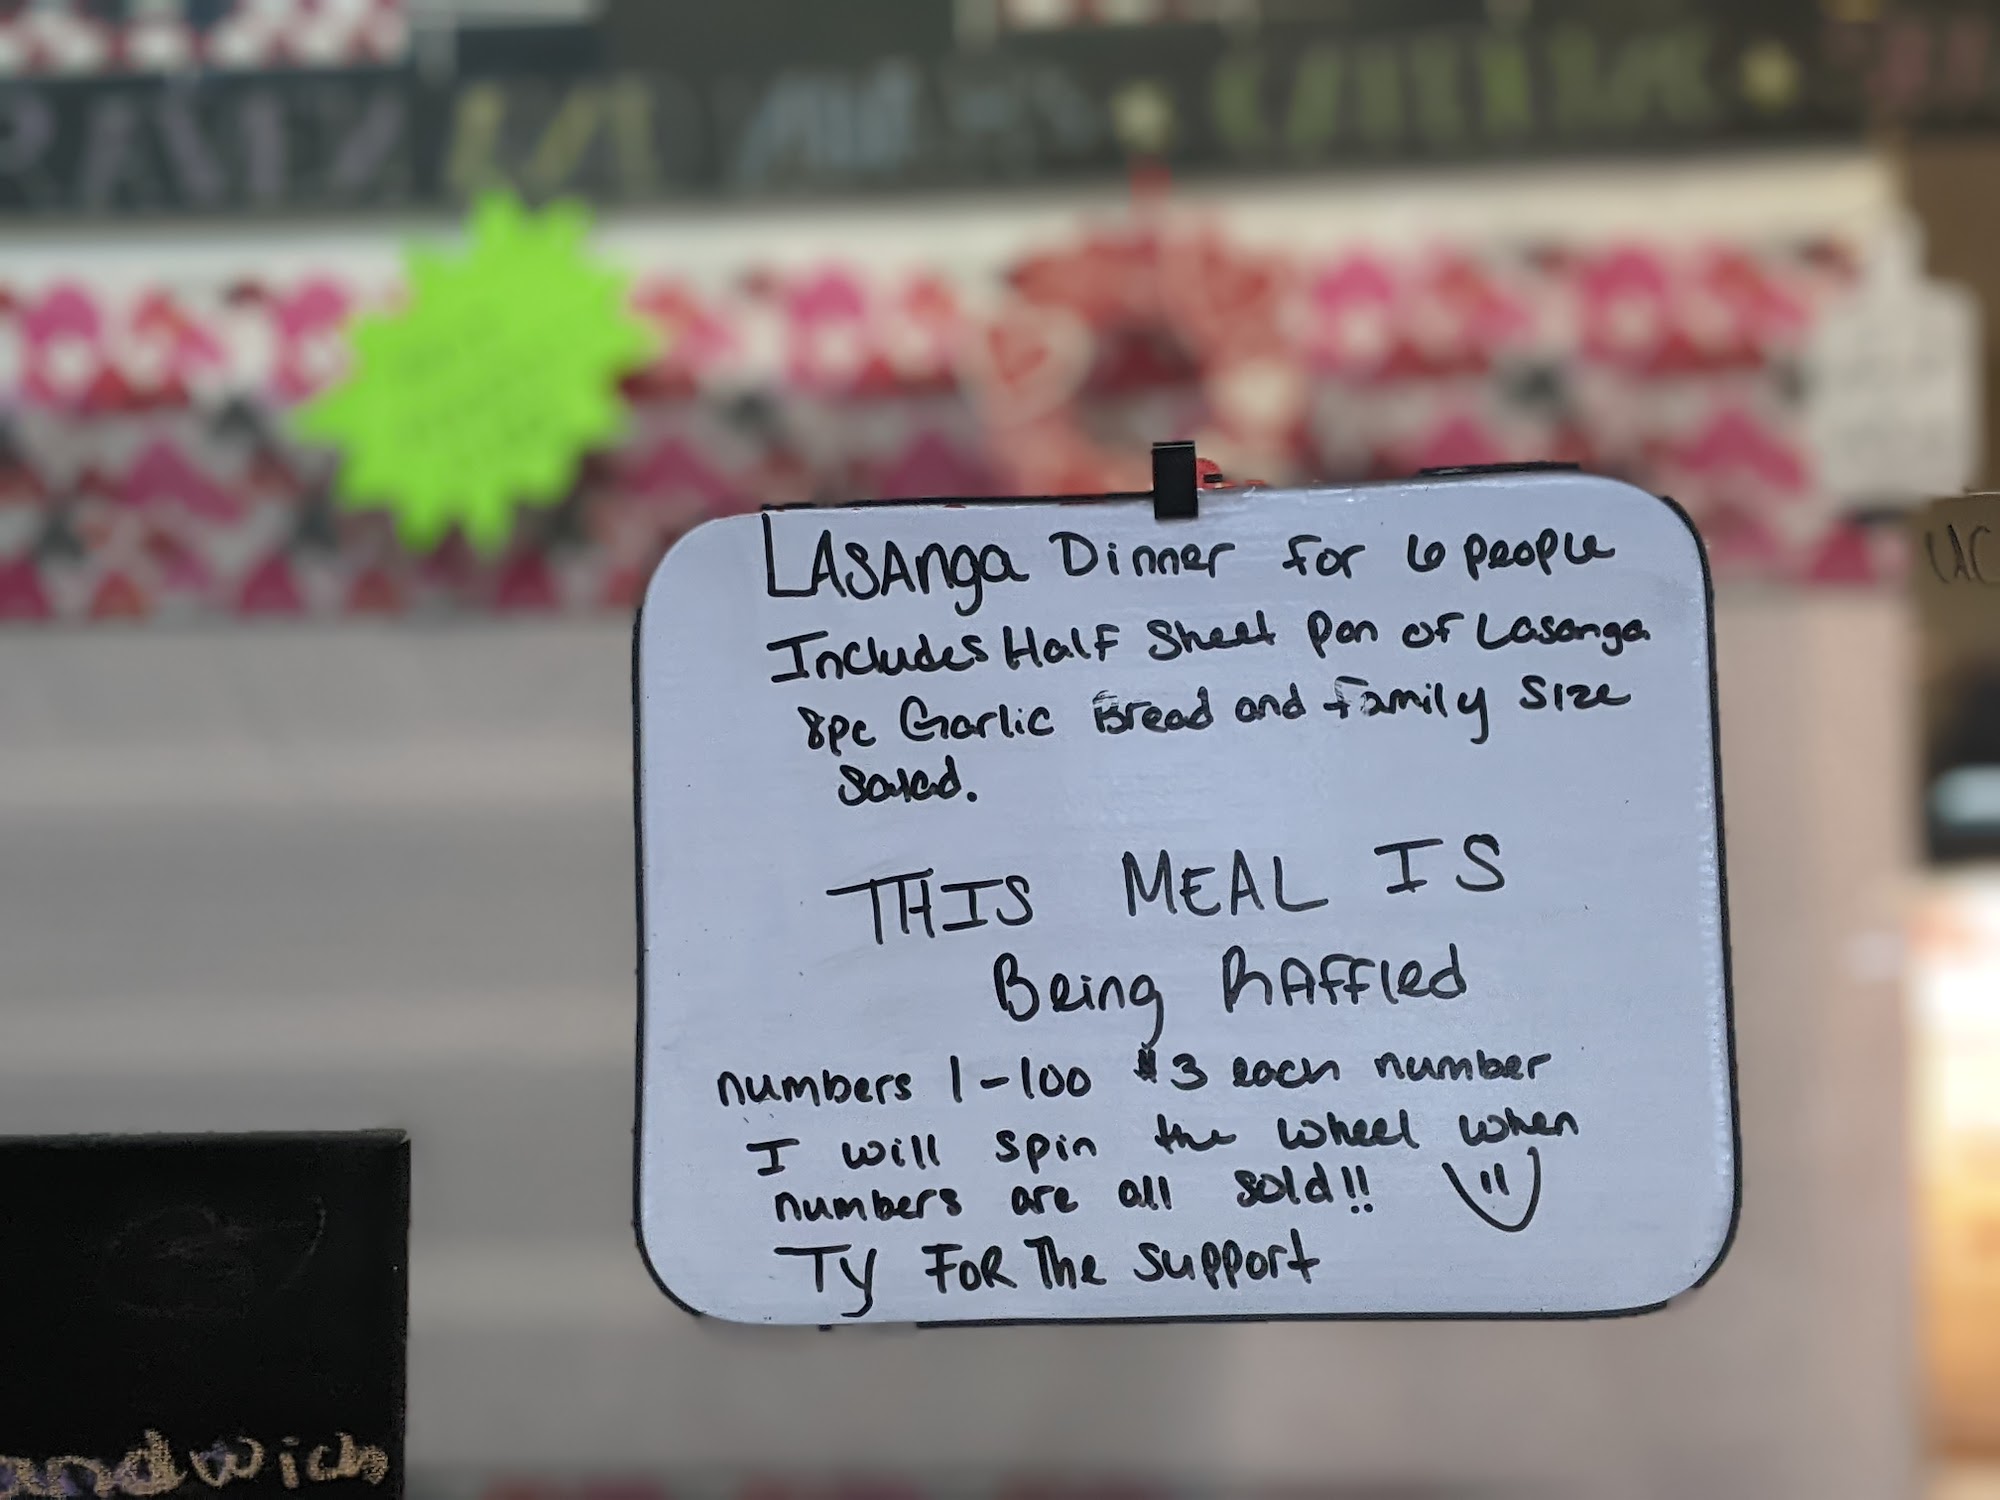 LASAnga Dinner for 6 people
Includes Half Sheet Pan of Lasanga
8pc Garlic Bread and Family Size
Salad.
THIS MEAL IS
Being RAffled
numbers 1-100 $3 each number
I will spin the wheel when
numbers are all sold!!
TY FoR The support
andwich